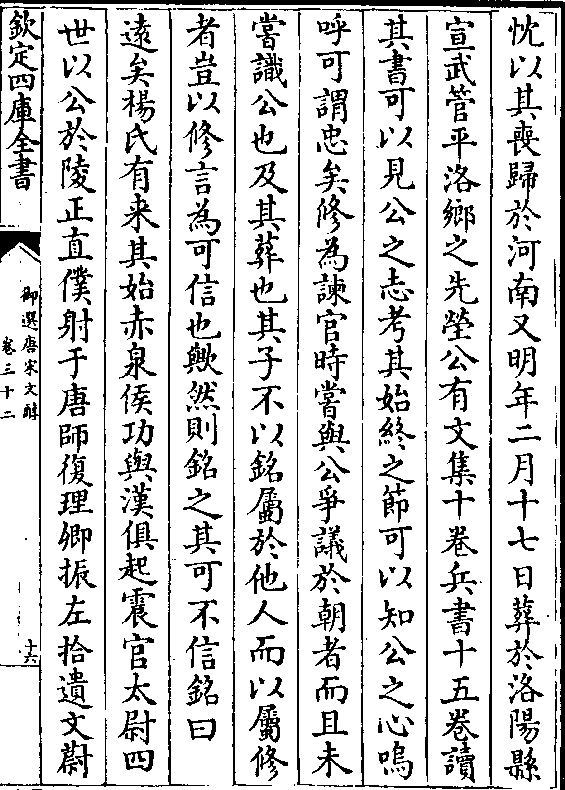 忱以其喪歸於河南又明年二月十七日葬於洛陽縣
宣武管平洛鄉之先塋公有文集十卷兵書十五卷讀
其書可以見公之志考其始終之節可以知公之心嗚
呼可謂忠矣修為諫官時嘗與公爭議於朝者而且未
嘗識公也及其葬也其子不以銘屬於他人而以屬修
者豈以修言為可信也歟然則銘之其可不信銘曰
遠矣楊氏有来其始赤泉侯功與漢俱起震官太尉四
世以公於陵正直僕射于唐師復理卿振左拾遺文蔚
欽定四庫全書
御選唐宋文醇
卷三十二
十六